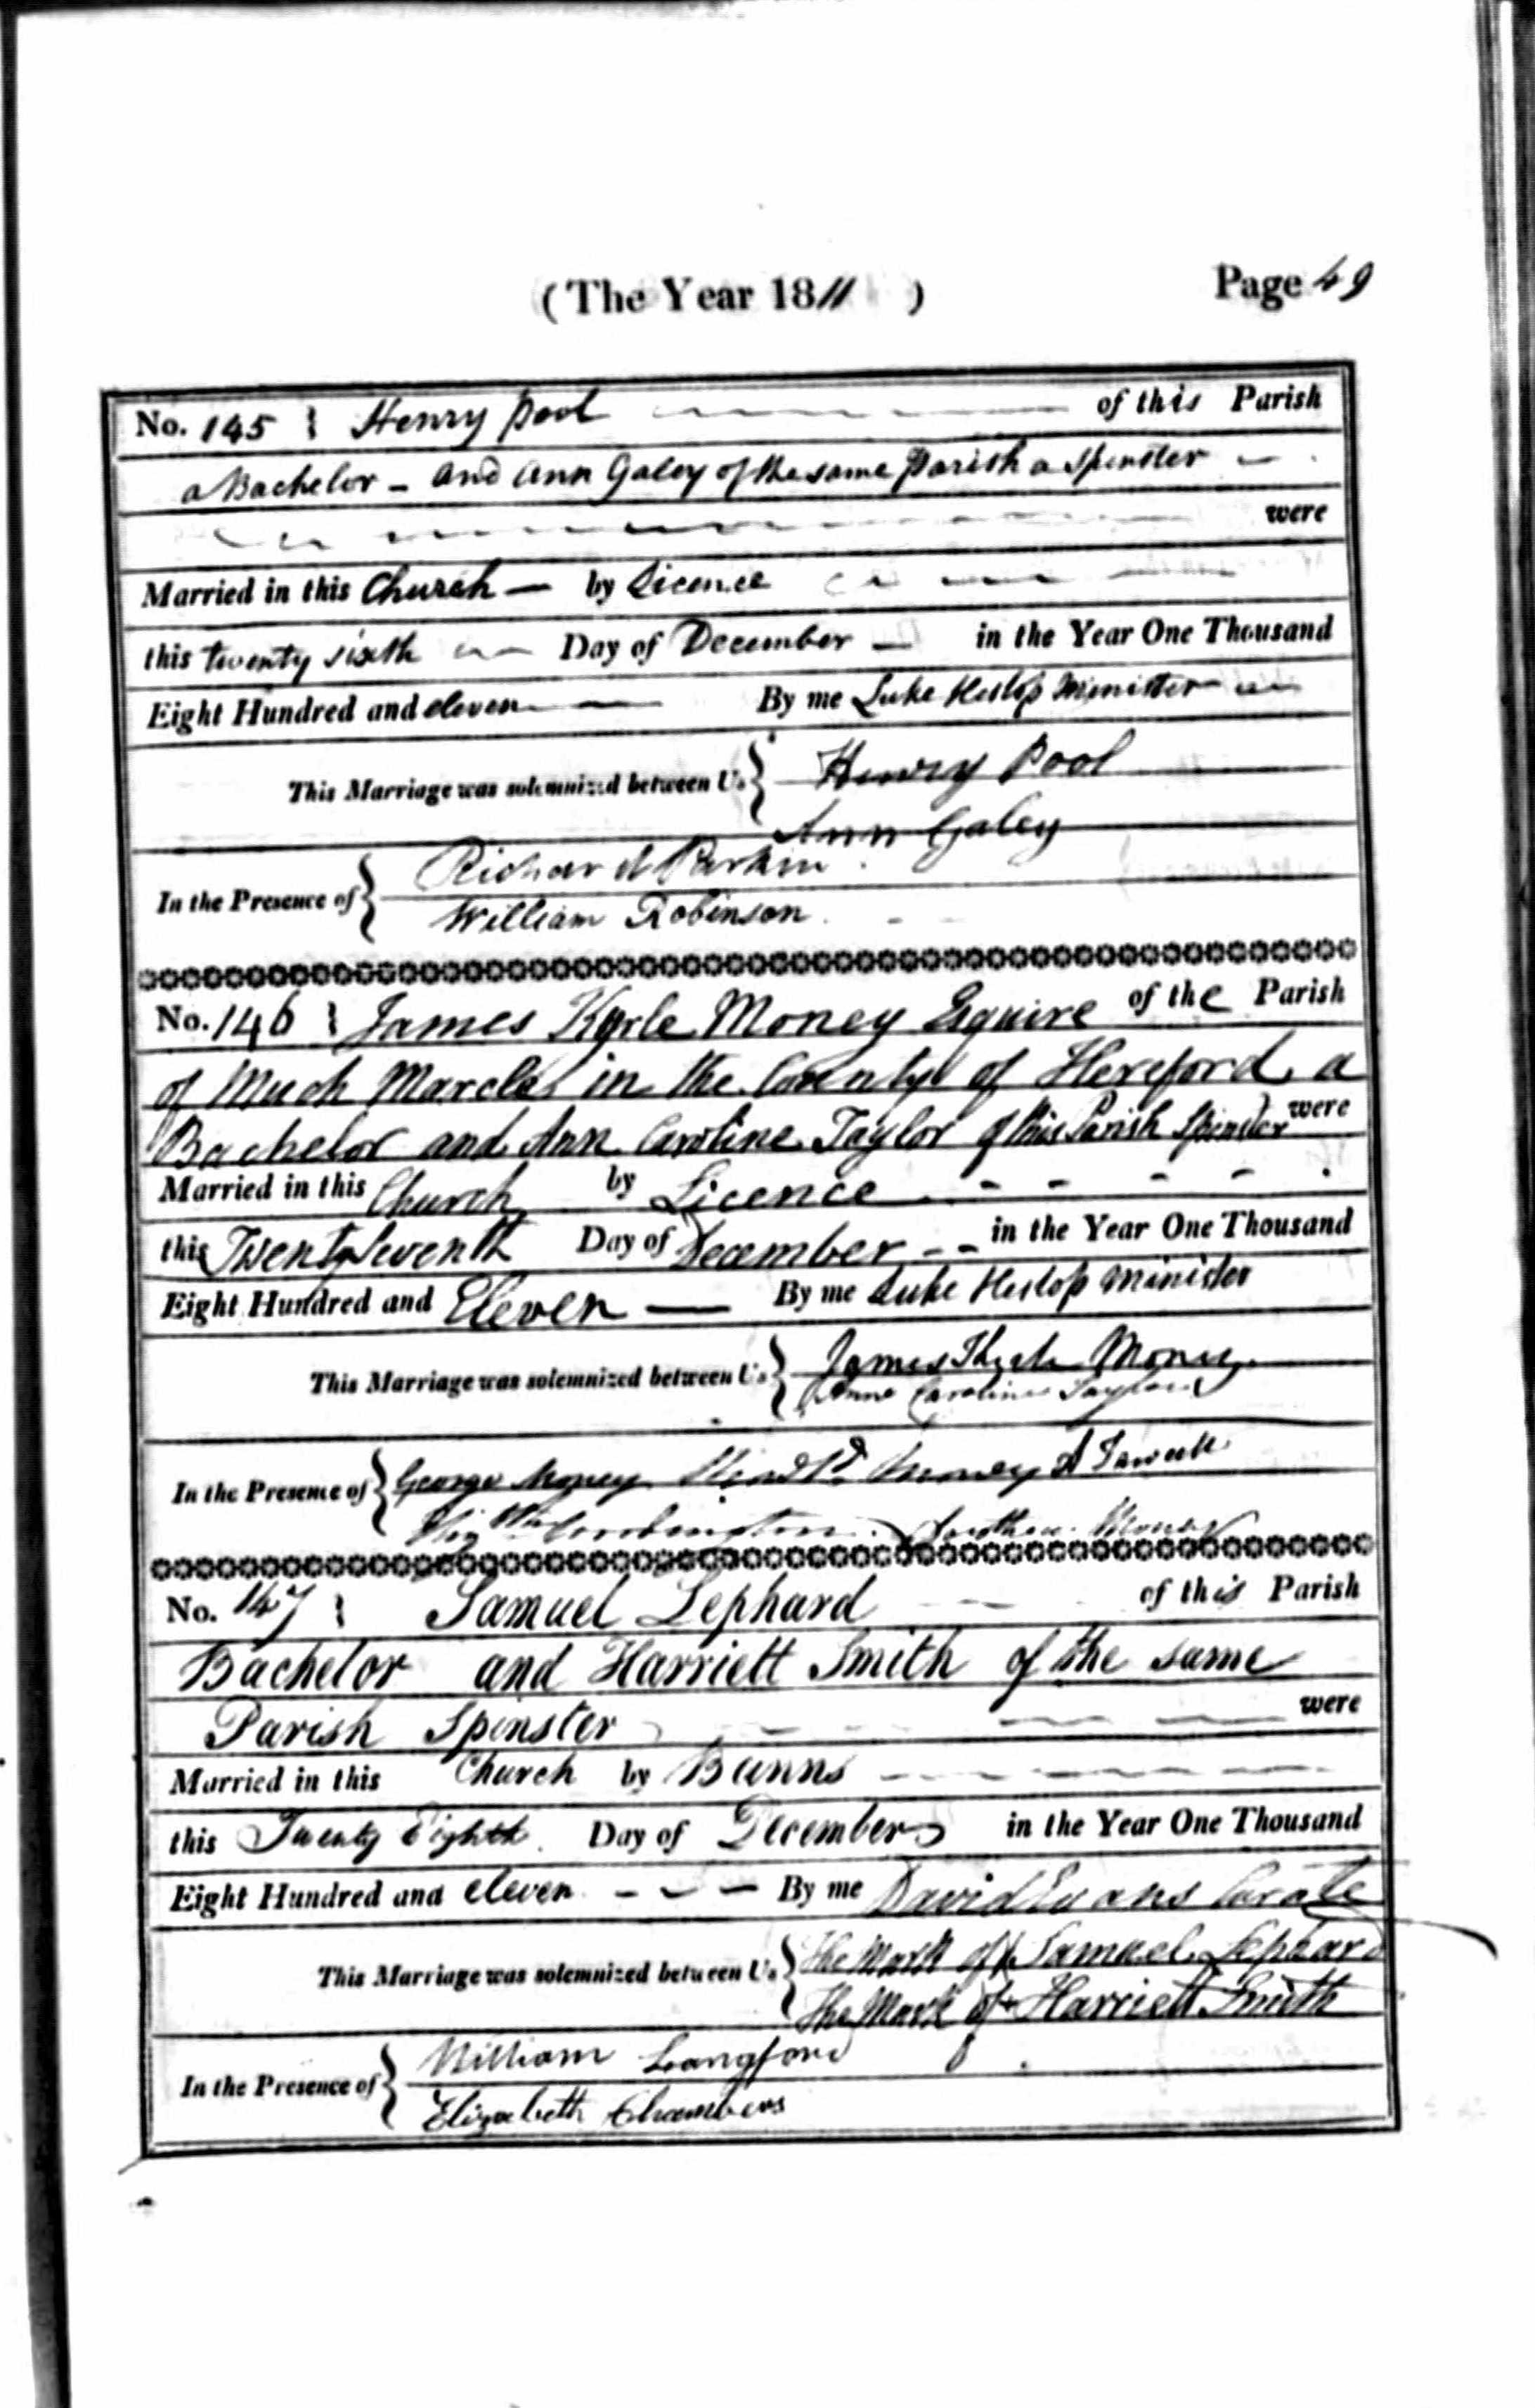 (The Year 1811 ) Page 49
No. 145 Henry Pool of this Parish
a Bachelor - and Ann Galey of the same Parish a Spinster
were
Married in this Church by Licence
this twenty sixth Day of December in the Year One Thousand
Eight Hundred and eleven By me Luke Heslop Minister
This Marriage was solemnized between Us Henry Pool
Ann Galey
In the Presence of Richard Parkin
William Robinson
No. 146 James Kyrle Money Esquire of the Parish
of Much Marcle in the County of Hereford a
Bachelor and Ann Caroline Taylor of this Parish Spinster were
Married in this Church by Licence
this Twenty Seventh Day of December in the Year One Thousand
Eight Hundred and Eleven By me Luke Heslop Minister
This Marriage was solemnized between Us James Kyrle Money
Anne Caroline Taylor
In the Presence of George Money Money
Money
No. 147 Samuel Lephard of this Parish
Bachelor and Harriett Smith of the same
Parish Spinster were
Married in this Church by Banns
this Twenty Eighth Day of December in the Year One Thousand
Eight Hundred and eleven By me David Evans Curate
This Marriage was solemnized between Us The Mark of x Samuel Lephard
The Mark of x Harriett Smith
In the Presence of William Langford
Elizabeth Chambers